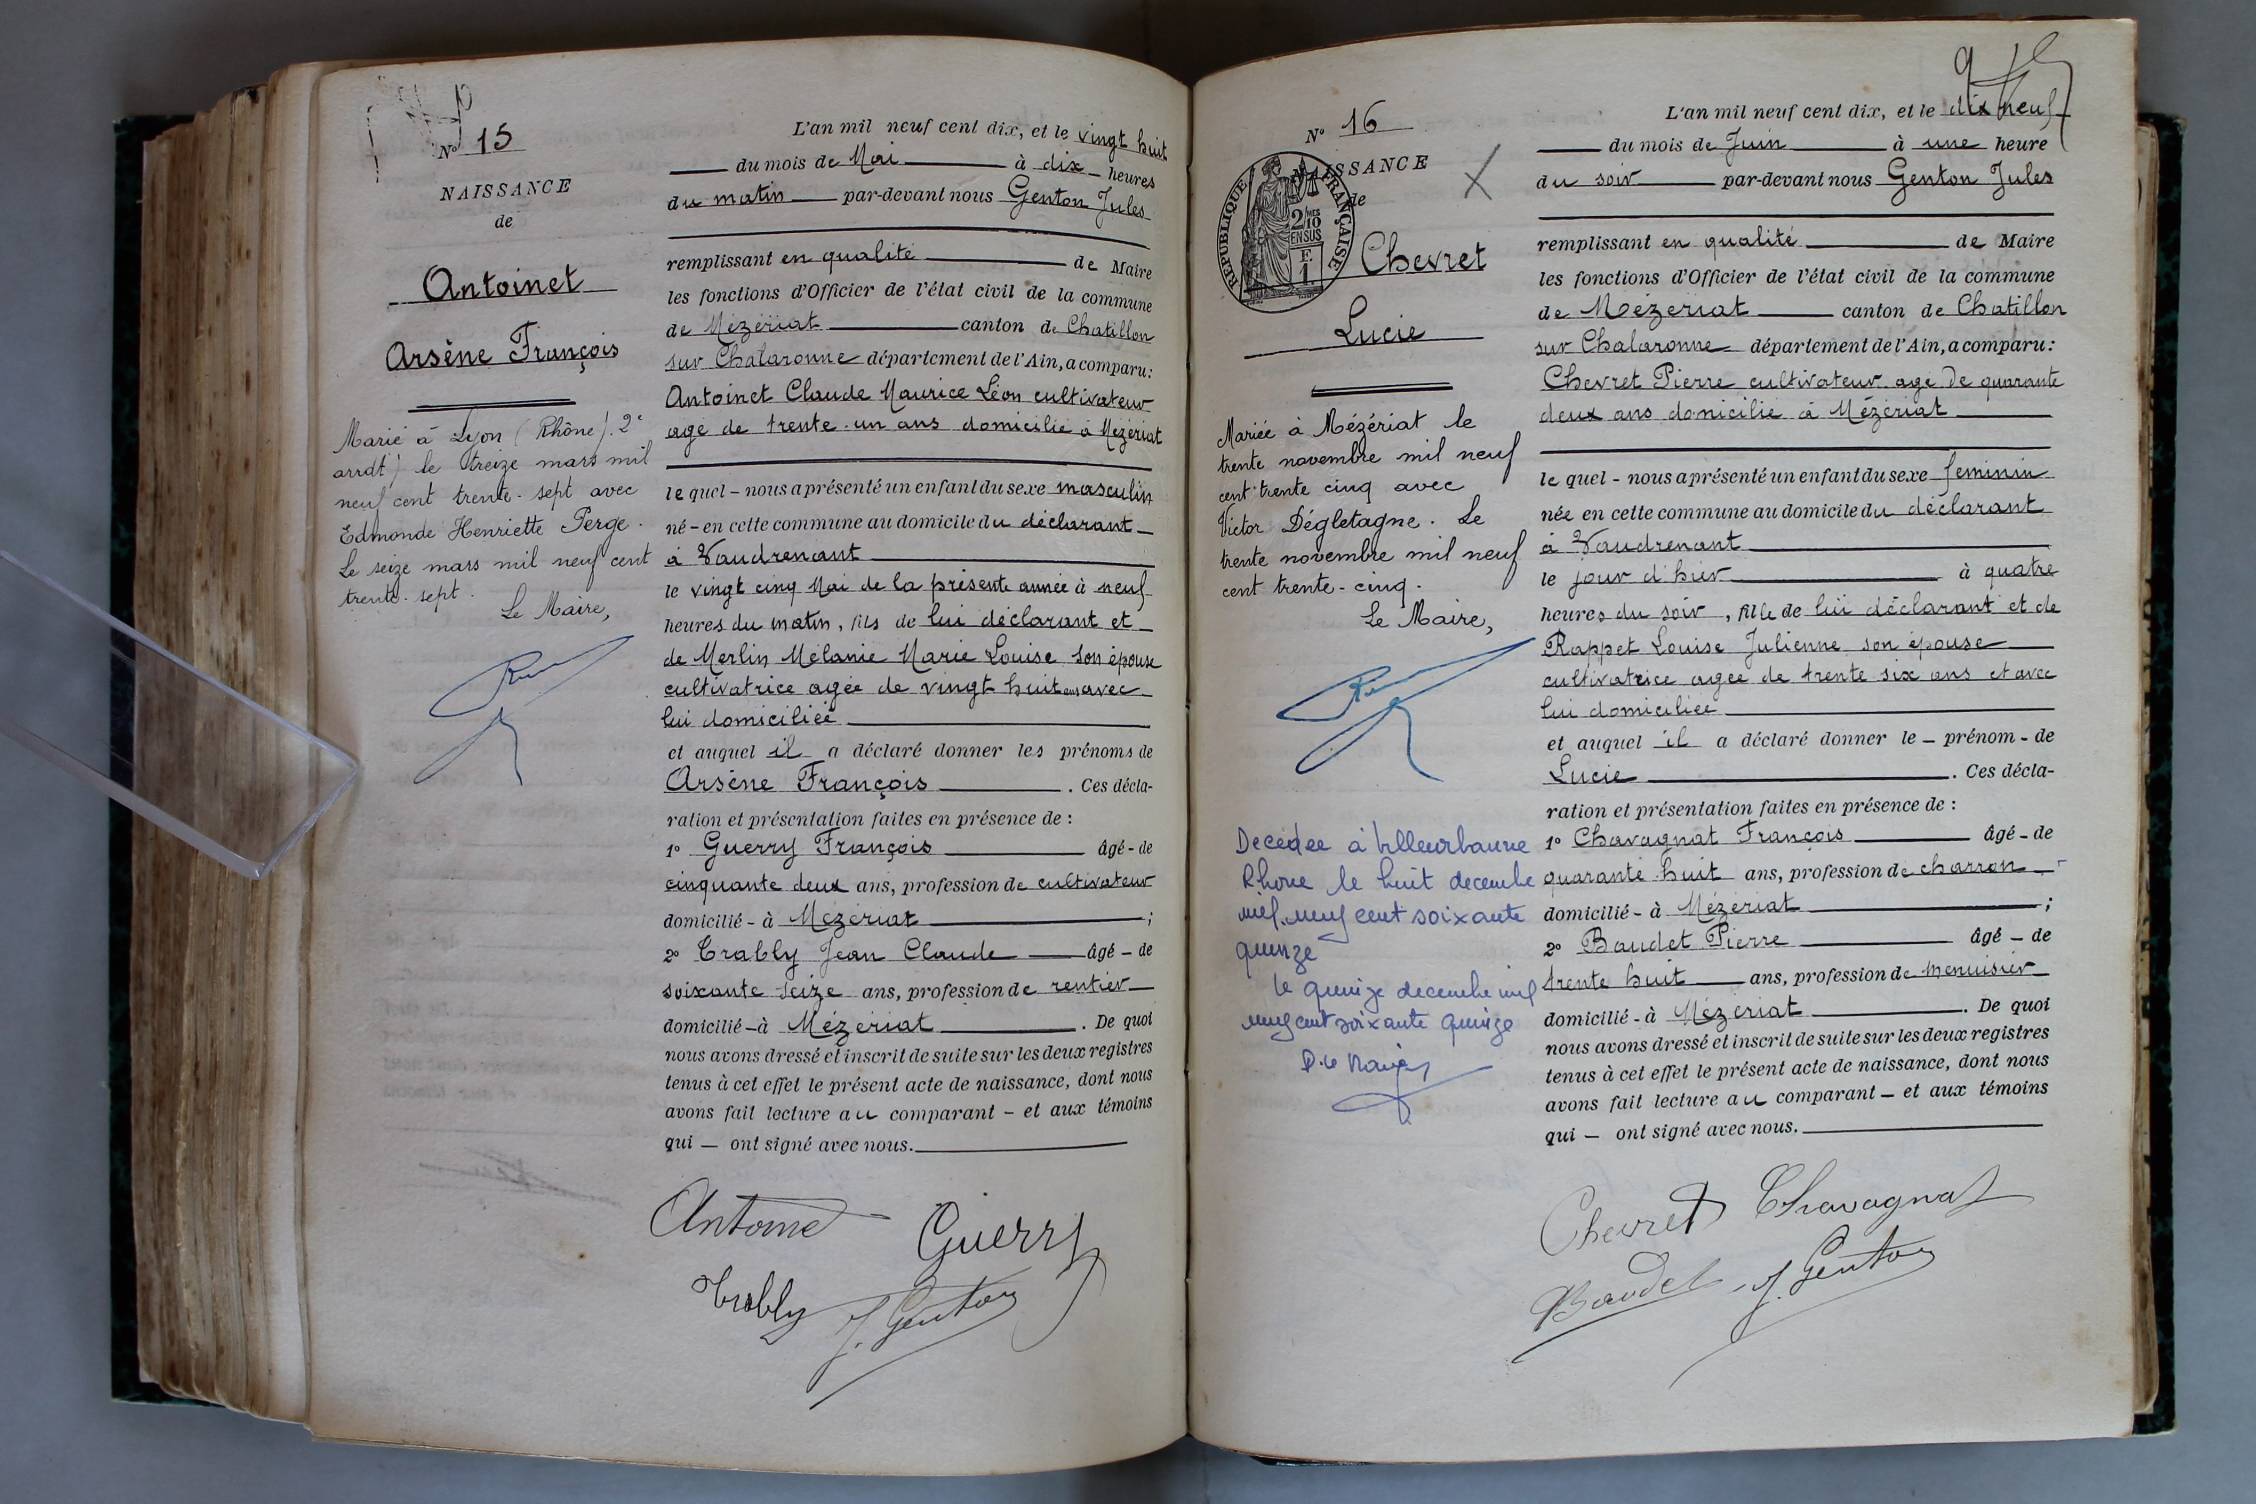 N° 15
NAISSANCE
de
Antoinet
Arsène François
Marié à Lyon (Rhône). 2e
arrdt) le treize mars mil
neuf cent trente-sept avec
Edmonde Henriette Perge.
Le seize mars mil neuf cent
trente-sept.
Le Maire,
L'an mil neuf cent dix, et le vingt huit
du mois de Mai à dix heures
du matin par-devant nous Genton Jules
remplissant en qualité de Maire
les fonctions d'Officier de l'état civil de la commune
de Mézériat canton de Chatillon
sur Chalaronne département de l'Ain, a comparu:
Antoinet Claude Maurice Léon cultivateur
age de trente-un ans domicilié à Mézériat
le quel - nous a présenté un enfant du sexe masculin
né - en cette commune au domicile du déclarant
à Vaudrenant
le vingt cinq Mai de la présente année à neuf
heures du matin, fils de lui déclarant et
de Merlin Mélanie Marie Louise son épouse
cultivatrice agée de vingt huit ans avec
lui domiciliée
et auquel il a déclaré donner les prénoms de
Arsène François . Ces décla-
ration et présentation faites en présence de :
1° Guerry François âgé - de
cinquante deux ans, profession de cultivateur
domicilié - à Mézériat ;
2° Trably Jean Claude âgé - de
soixante seize ans, profession de rentier
domicilié - à Mézériat . De quoi
nous avons dressé et inscrit de suite sur les deux registres
tenus à cet effet le présent acte de naissance, dont nous
avons fait lecture au comparant - et aux témoins
qui - ont signé avec nous.
Antoinet Guerry
Trably J. Genton
N° 16
NAISSANCE
de
RÉPUBLIQUE FRANÇAISE
2/MES
10
EN SUS
F.
1
Chevret
Lucie
Mariée à Mézériat le
trente novembre mil neuf
cent trente cinq avec
Victor Dégletagne. Le
trente novembre mil neuf
cent trente-cinq.
Le Maire,
Decédée à Villeurbanne
Rhone le huit decembre
mil neuf cent soixante
quinze
le quinze decembre mil
neuf cent soixante quinze
P. le Maire,
L'an mil neuf cent dix, et le dix neuf
du mois de Juin à une heure
du soir par-devant nous Genton Jules
remplissant en qualité de Maire
les fonctions d'Officier de l'état civil de la commune
de Mézériat canton de Chatillon
sur Chalaronne département de l'Ain, a comparu:
Chevret Pierre cultivateur age de quarante
deux ans domicilié à Mézériat
le quel - nous a présenté un enfant du sexe feminin
née en cette commune au domicile du déclarant
à Vaudrenant
le jour d'hier à quatre
heures du soir, fille de lui déclarant et de
Rappet Louise Julienne son épouse
cultivatrice agée de trente six ans et avec
lui domiciliée
et auquel il a déclaré donner le - prénom - de
Lucie . Ces décla-
ration et présentation faites en présence de :
1° Chavagnat François âgé - de
quarante huit ans, profession de charron
domicilié - à Mézériat ;
2° Baudet Pierre âgé - de
trente huit ans, profession de menuisier
domicilié - à Mézériat . De quoi
nous avons dressé et inscrit de suite sur les deux registres
tenus à cet effet le présent acte de naissance, dont nous
avons fait lecture au comparant - et aux témoins
qui - ont signé avec nous.
Chevret Chavagnat
Baudet J. Genton